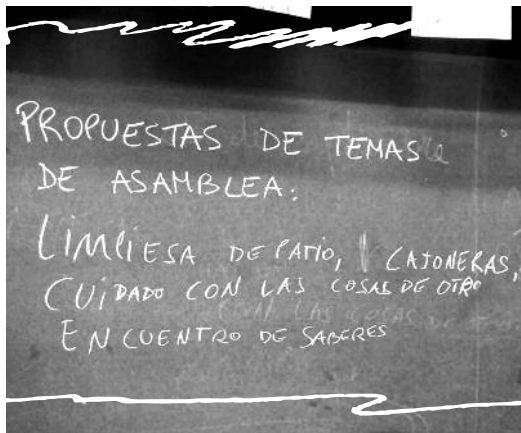 PROPUESTAS DE TEMAS
DE ASAMBLEA:
LIMPIESA DE PATIO, CAJONERAS,
CUIDADO CON LAS COSAS DE OTRO
ENCUENTRO DE SABERES